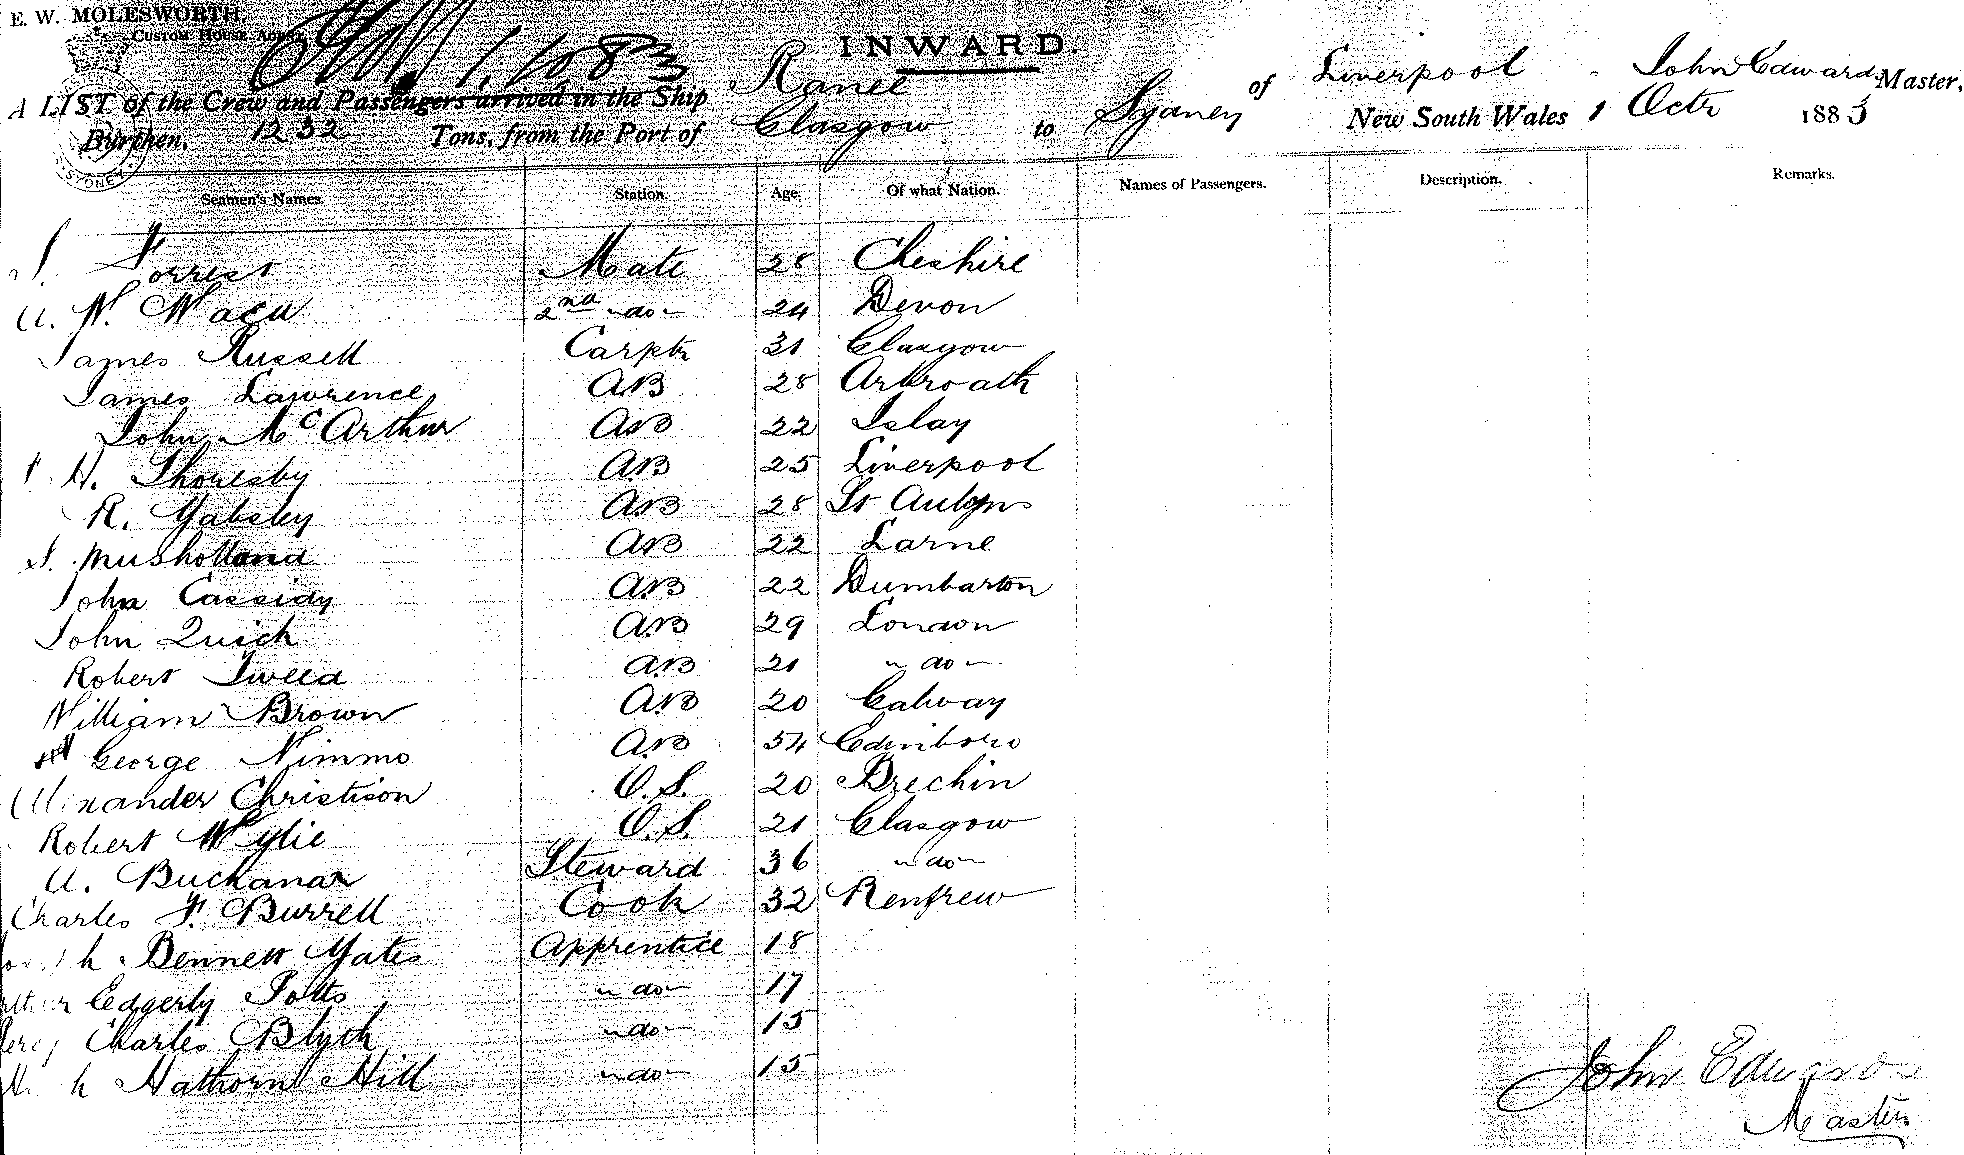 E. W. MOLESWORTH.
Custom House Agent
INWARD.
A LIST of the Crew and Passengers arrived in the Ship Ranee of Liverpool, John Edwards Master,
Burthen, 1232 Tons, from the Port of Glasgow to Sydney New South Wales 1 Octr 1883
SYDNEY
Seamen's Names. Station. Age. Of what Nation. Names of Passengers. Description. Remarks.
Forrest Mate 28 Cheshire
W. 2nd do 24 Devon
James Russell Carptr 31 Glasgow
James Lawrence AB 28 Arbroath
John McArthur AB 22 Islay
H. Thoresby AB 25 Liverpool
R. Yabsley AB 28 St
S. Mushollond AB 22 Larne
John Cassidy AB 22 Dumbarton
John Quick AB 29 London
Robert Tweed AB 21 do
William Brown AB 20 Galway
George Nimmo AB 54 Edinboro
Alexander Christison O.S. 20 Brechin
Robert Wylie O.S. 21 Glasgow
A. Buchanan Steward 36 do
Charles F. Burrell Cook 32 Renfrew
Bennett Yates Apprentice 18
Edgerly Potts do 17
Percy Charles Blyth do 15
Hathorn Hill do 15
John Edwards
Master